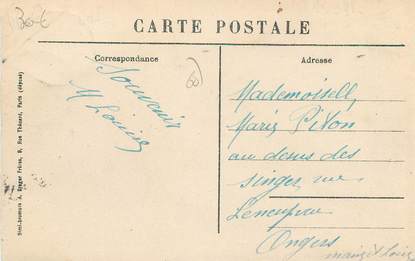 30-€
CARTE POSTALE
Correspondance
Adresse
60
Souvenir
M Louise
Mademoisell
Marie Pilon
au desus des
singes rue
Leneupveu
Angers
Simi-bromure A. Breger Frères, 9, Rue Thénard, Paris (déposé)